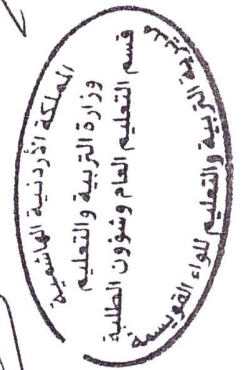 المملكة الأردنية الهاشمية
وزارة التربية والتعليم
قسم التعليم العام وشؤون الطلبة
تربية التربية والتعليم للواء القويسمة